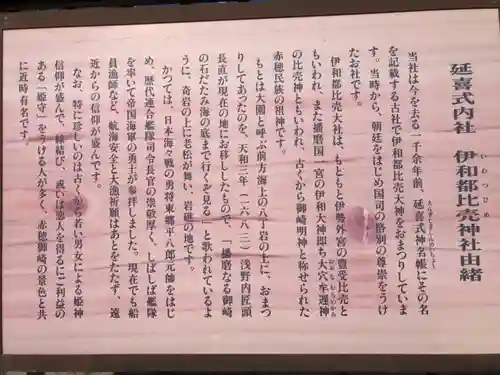 延喜式内社 伊和都比売神社由緒
いわつひめ
当社は今を去る一千余年前、延喜式神名帳にその名
えんぎしきじんみょうちょう
を記載する古社で伊和都比売大神をおまつりしていま
す。当時から、朝廷をはじめ国司の格別の尊崇をうけ
たお社です。
伊和都比売大社は、もともと伊勢外宮の豊受比売と
もいわれ、また播磨国一宮の伊和大神即ち大穴牟遅神
の比売神ともいわれ、古くから御崎明神と称せられた
赤穂民族の祖神です。
もとは大園と呼ぶ前方海上の八丁岩の上に、おまつ
りしてあったのを、天和三年(一六八三)浅野内匠頭
長直が現在の地にお移ししたもので、「播磨なる御崎
の石だたみ海の底まで行くぞ見る」と歌われているよ
うに、奇岩の上に老松が舞い、岩磯の地です。
かつては、日本海々戦の勇将東郷平八郎元帥をはじ
め、歴代連合艦隊司令長官の崇敬厚く、しばしば艦隊
を率いて帝国海軍の勇士が参拝しました。現在でも船
員漁師など、航海安全と大漁祈願はあとをたたず、遠
近からの信仰が盛んです。
なお、特に珍しいのは古くから若い男女による姫神
信仰が盛んで、縁結び、或いは恋人を得るにご利益の
ある「姫守」をうける人が多く、赤穂御崎の景色と共
に近時有名です。